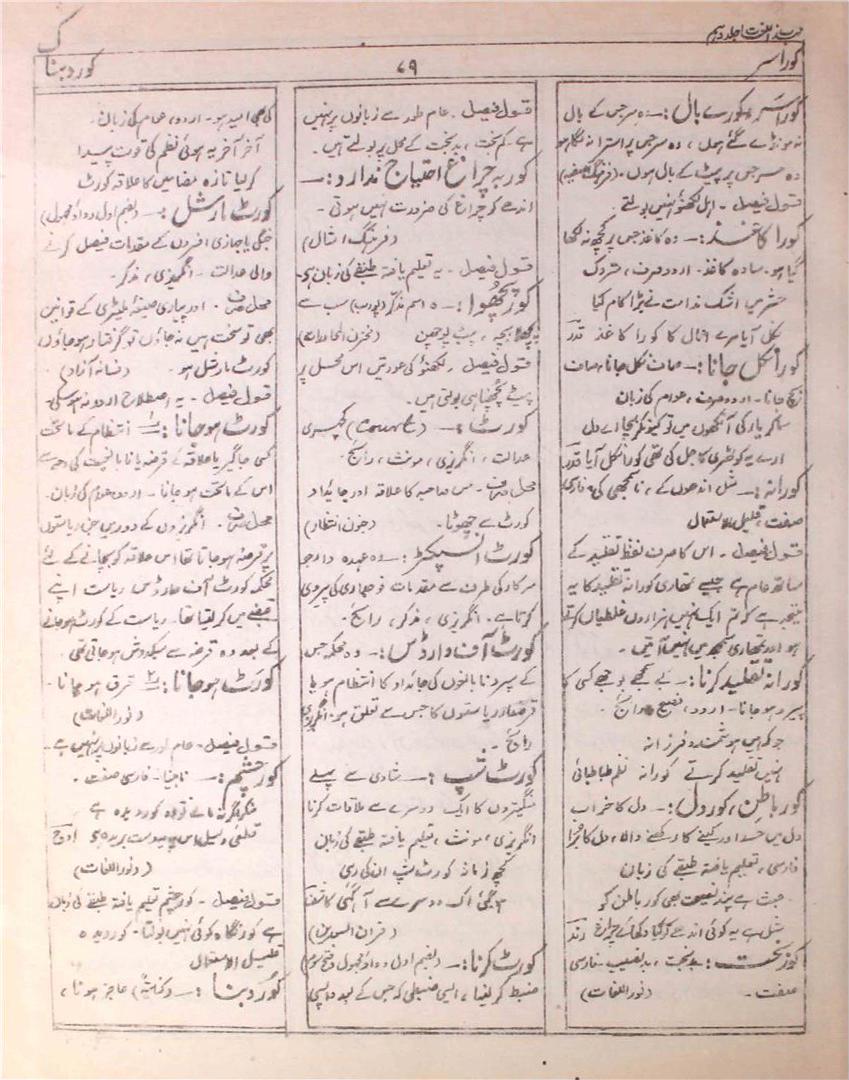 مہذب اللغات جلد دہم
کورا سر
۷۹
کور دبنا
ک
کورا سر، کورے بال :۔ وہ سر جس کے بال
نہ مونڈے گئے ہوں، وہ سر جس پر استرا نہ لگا ہو
وہ سر جس پر پیٹ کے بال ہوں۔ (فرہنگ آصفیہ)
قول فیصل۔ اہل لکھنؤ نہیں بولتے۔
کورا کاغذ :۔ وہ کاغذ جس پر کچھ نہ لکھا
گیا ہو۔ سادہ کاغذ۔ اردو صرف، متروک
حشر میں اشک ندامت نے بڑا کام کیا
نکل آیا مرے اعمال کا کورا کاغذ قدر
کورا نکل جانا :۔ صاف نکل جانا، صاف
بچ جانا۔ اردو صرف، عوام کی زبان
ساغر یار کی آنکھوں میں تو کیونکر بچا اے دل
ارے یہ کوٹھری کاجل کی تھی کورا نکل آیا قدر
کورانہ :۔ مثل اندھوں کے، ناسمجھی کی۔ فارسی
صفت، قلیل الاستعمال
قول فیصل۔ اس کا صرف لفظ تقلید کے
ساتھ عام ہے جیسے تمہاری کورانہ تقلید کا یہ
نتیجہ ہے کہ تم ایک نہیں ہزاروں غلطیاں کرتے
ہو اور تمہاری سمجھ میں نہیں آتیں۔
کورانہ تقلید کرنا :۔ بے سمجھے بوجھے کسی کا
پیرو ہو جانا۔ اردو، فصیح، رائج۔
جو کہ ہیں ہوشمند و فرزانہ
نہیں تقلید کرتے کورانہ نظم طباطبائی
کور باطن، کور دل :۔ دل کا خراب
دل میں حسد اور کینے کا رکھنے والا، دل کا
فارسی، تعلیم یافتہ طبقے کی زبان
عبث ہے پند نصیحت بھی کور باطن کو
مثل ہے یہ کوئی اندھے کو کیا دکھائے چراغ رند
کور بخت :۔ بدبخت، بدنصیب۔ فارسی
صفت۔ (نور اللغات)
قول فیصل۔ عام طور سے زبانوں پر نہیں
ہے۔ کم بخت، بدبخت کے محل پر بولتے ہیں۔
کور بہ چراغ احتیاج ندارد :۔
اندھے کو چراغ کی ضرورت نہیں ہوتی۔
(فرہنگ امثال)
قول فیصل۔ یہ تعلیم یافتہ طبقے کی زبان ہے۔
کور پچھوا :۔ اسم مذکر (پورب) سب سے
پچھلا بچہ، پیٹ پونچھن (مخزن المحاورات)
قول فیصل۔ لکھنؤ کی عورتیں اس محل پر
پیٹ پونچھنا ہی بولتی ہیں۔
کورٹ :۔ (Court) کچہری
عدالت، انگریزی، مونث، رائج۔
محل صرف۔ مس صاحبہ کا علاقہ اور جائیداد
کورٹ سے چھوٹا۔ (جنون انتظار)
کورٹ انسپکٹر :۔ وہ عہدہ دار جو
سرکار کی طرف سے مقدمات فوجداری کی پیروی
کرتا ہے۔ انگریزی، مذکر، رائج۔
کورٹ آف وارڈس :۔ وہ محکمہ جس
کے سپرد نابالغوں کی جائداد کا انتظام ہو یا
قرضدار ریاستوں کا جس سے تعلق ہو۔ انگریزی
رائج۔
کورٹ شپ :۔ شادی سے پہلے
منگیتروں کا ایک دوسرے سے ملاقات کرنا
انگریزی، مونث، تعلیم یافتہ طبقے کی زبان
کچھ زمانہ کورٹ شپ ان کی رہی
اک دوسرے سے آ گئی کا شفا
(قران السعدین)
کورٹ کرنا :۔ (بضم اول و واؤ مجہول و فتح سوم)
ضبط کر لینا، ایسی ضبطی کہ جس کے بعد واپسی
کی بھی امید ہو۔ اردو، عام کی زبان۔
آخر آخر یہ ہوئی نظم کی قوت پیدا
کر لیا تازہ مضامین کا علاقہ کورٹ
کورٹ مارشل :۔ (بضم اول و واؤ مجہول)
جنگی یا جہازی افسروں کے مقدمات فیصل کرنے
والی عدالت۔ انگریزی، مذکر۔
محل صرف۔ اور پیاری صیغۂ ملیٹری کے قوانین
بھی تو سخت ہیں نہ جاؤں تو گرفتار ہو جاؤں
کورٹ مارشل ہو (فسانہ آزاد)
قول فیصل۔ یہ اصطلاح اردو نہ ہو سکی۔
کورٹ ہو جانا :۔ ۱؎ انتظام کے ماتحت
کسی جاگیر یا علاقہ کے قرضہ یا نابالغیت کی وجہ سے
اس کے ماتحت ہو جانا۔ اردو، عوام کی زبان۔
محل صرف۔ انگریزوں کے دور میں جن ریاستوں
پر قرضہ ہو جاتا تھا اس علاقہ کو بچانے کے لئے
محکمہ کورٹ آف وارڈس ریاست اپنے
قبضے میں کر لیتا تھا۔ ریاست کے کورٹ ہو جانے
کے بعد وہ قرضہ سے سبکدوش ہو جاتی تھی۔
کورٹ ہو جانا :۔ ۲؎ قرق ہو جانا۔
(نور اللغات)
قول فیصل۔ عام طور سے زبانوں پر نہیں ہے۔
کور چشم :۔ نابینا۔ فارسی صفت۔
منکر اگر نہ مانے تو وہ کور دیدہ ہے
قطعی دلیل اس پہ پوست بریدہ ہے اوج
(نور اللغات)
قول فیصل۔ کور چشم تعلیم یافتہ طبقے کی زبان
ہے کور نگاہ کوئی نہیں بولتا۔ کور دیدہ
قلیل الاستعمال
کور دبنا :۔ (کنایۃً) عاجز ہونا،